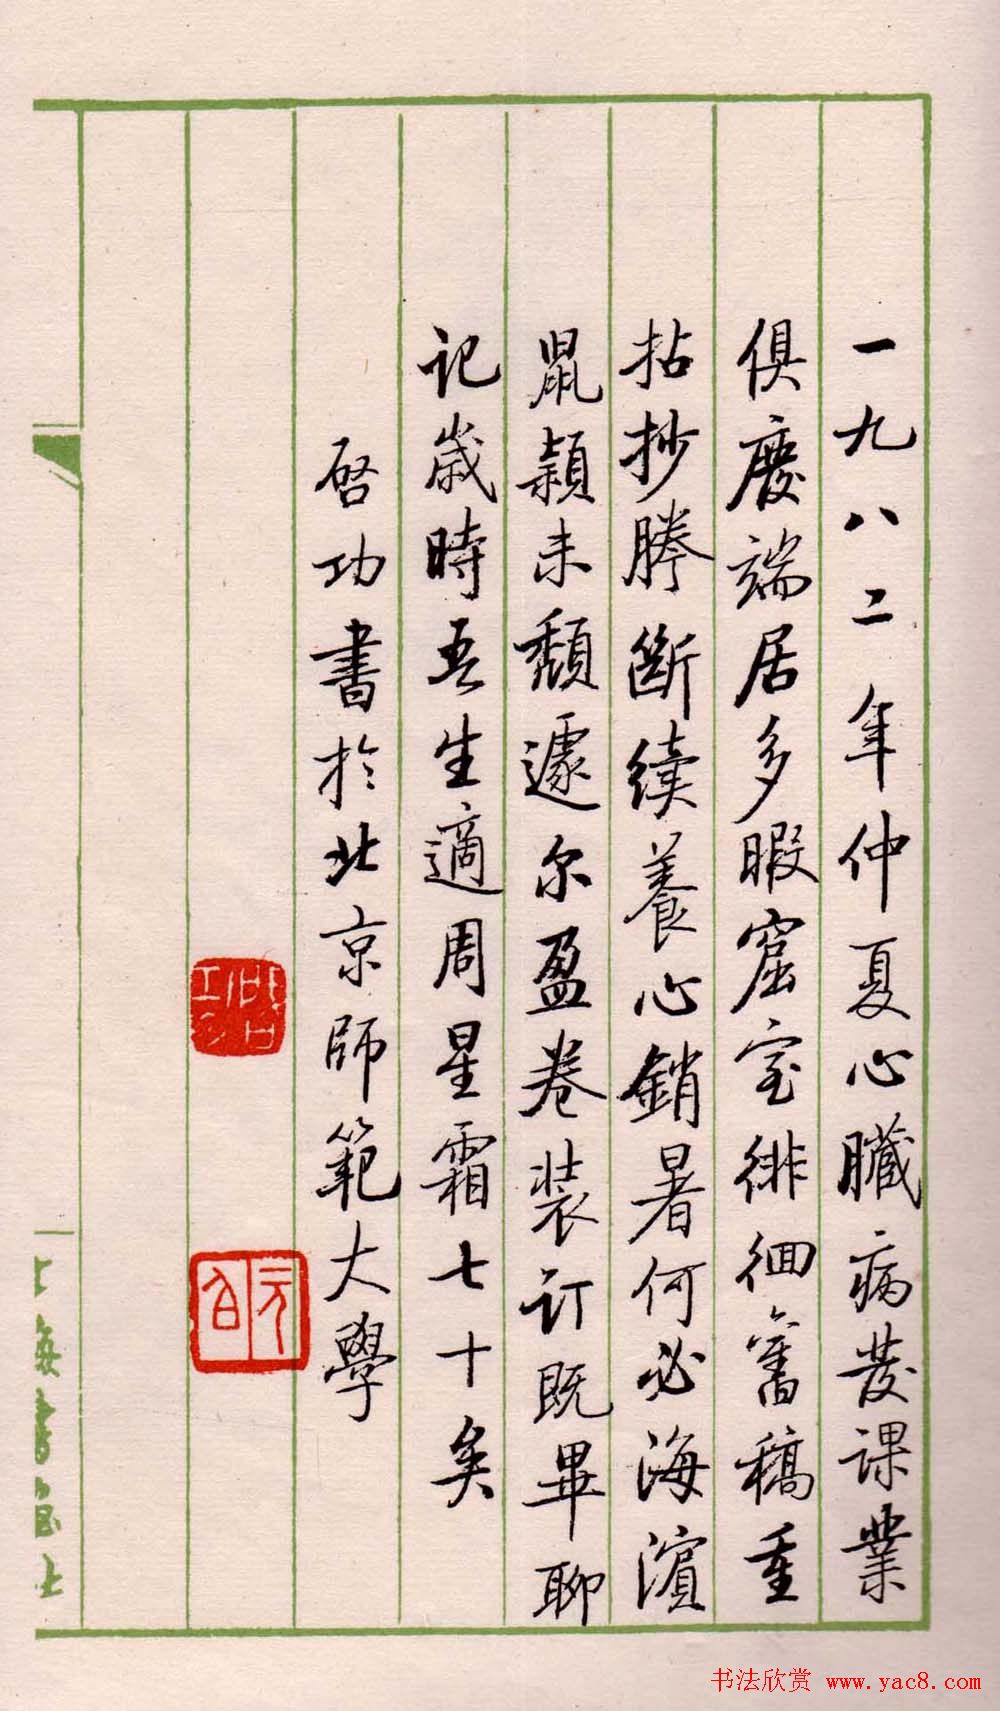 一九八二年仲夏心臟病發課業
俱廢端居多暇窟室徘徊舊稿重
拈抄謄斷續養心銷暑何必海濱
鼠穎未頹遽尔盈卷装订既畢聊
记歲時吾生適周星霜七十矣
启功書於北京師範大學
启功
元白
书法欣赏 www.yac8.com